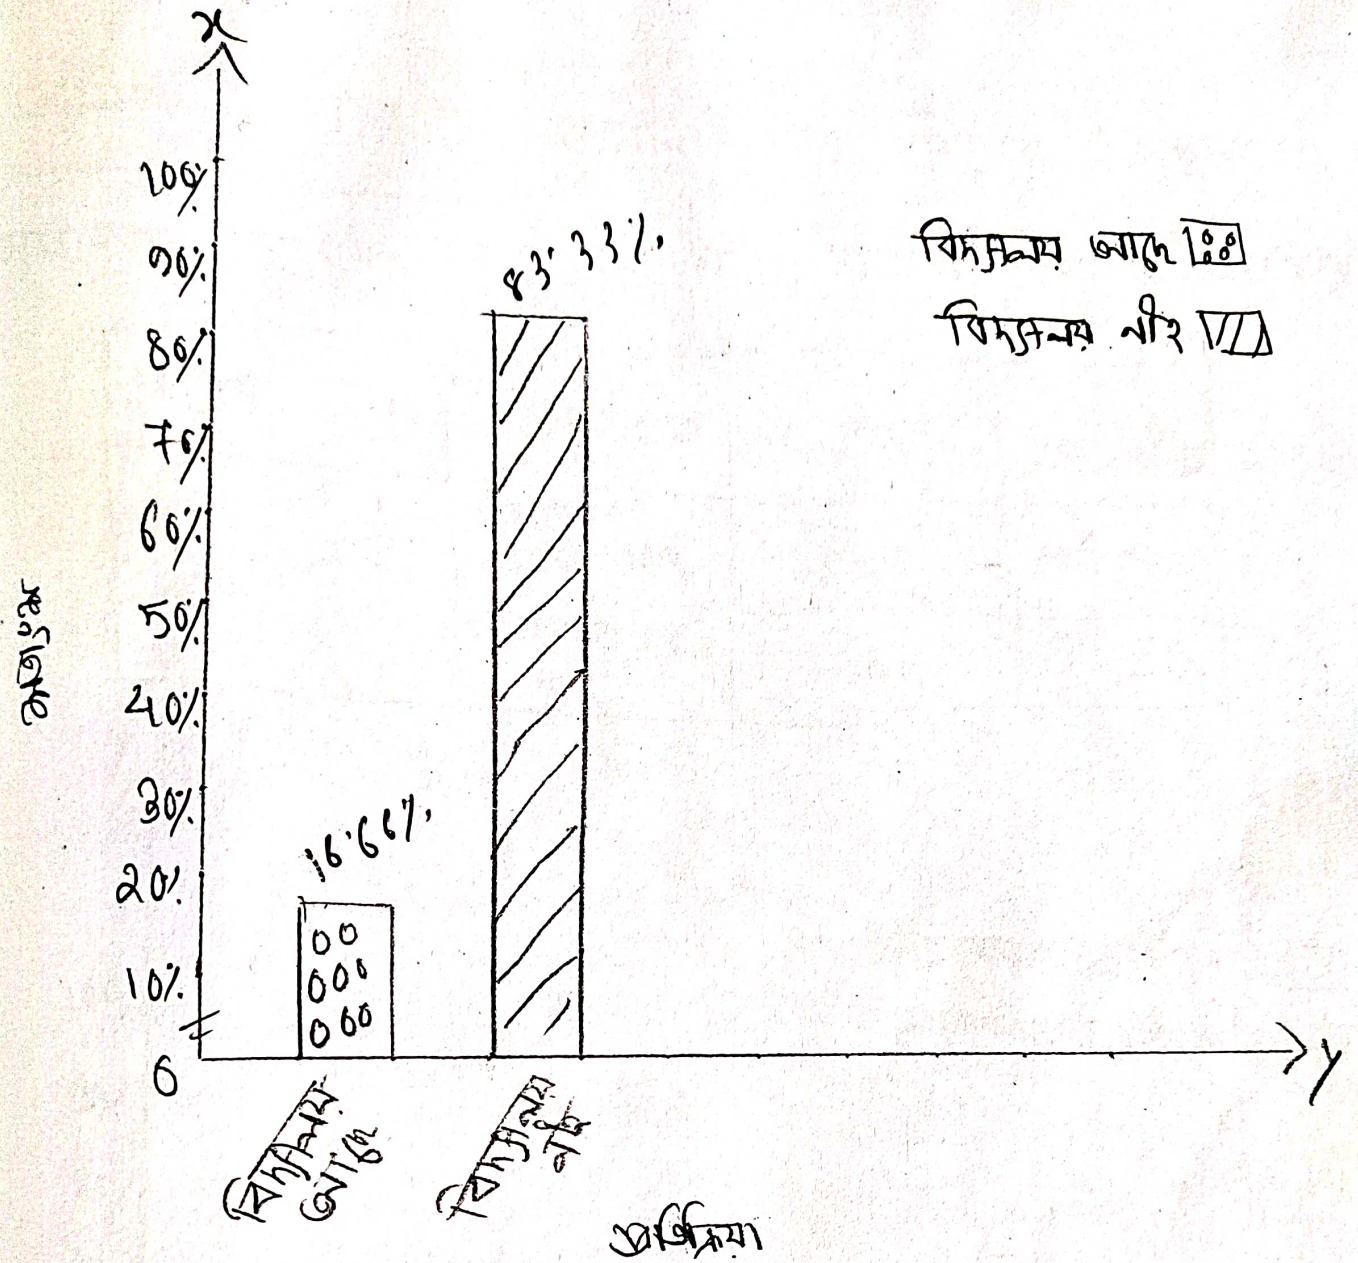 x
100%
90%
80%
70%
60%
50%
40%
30%
20%
10%
0
83.33%
16.66%
বিদ্যালয় আছে
বিদ্যালয় নাই
y
বিদ্যালয়
আছে
বিদ্যালয়
নাই
প্রতিক্রিয়া